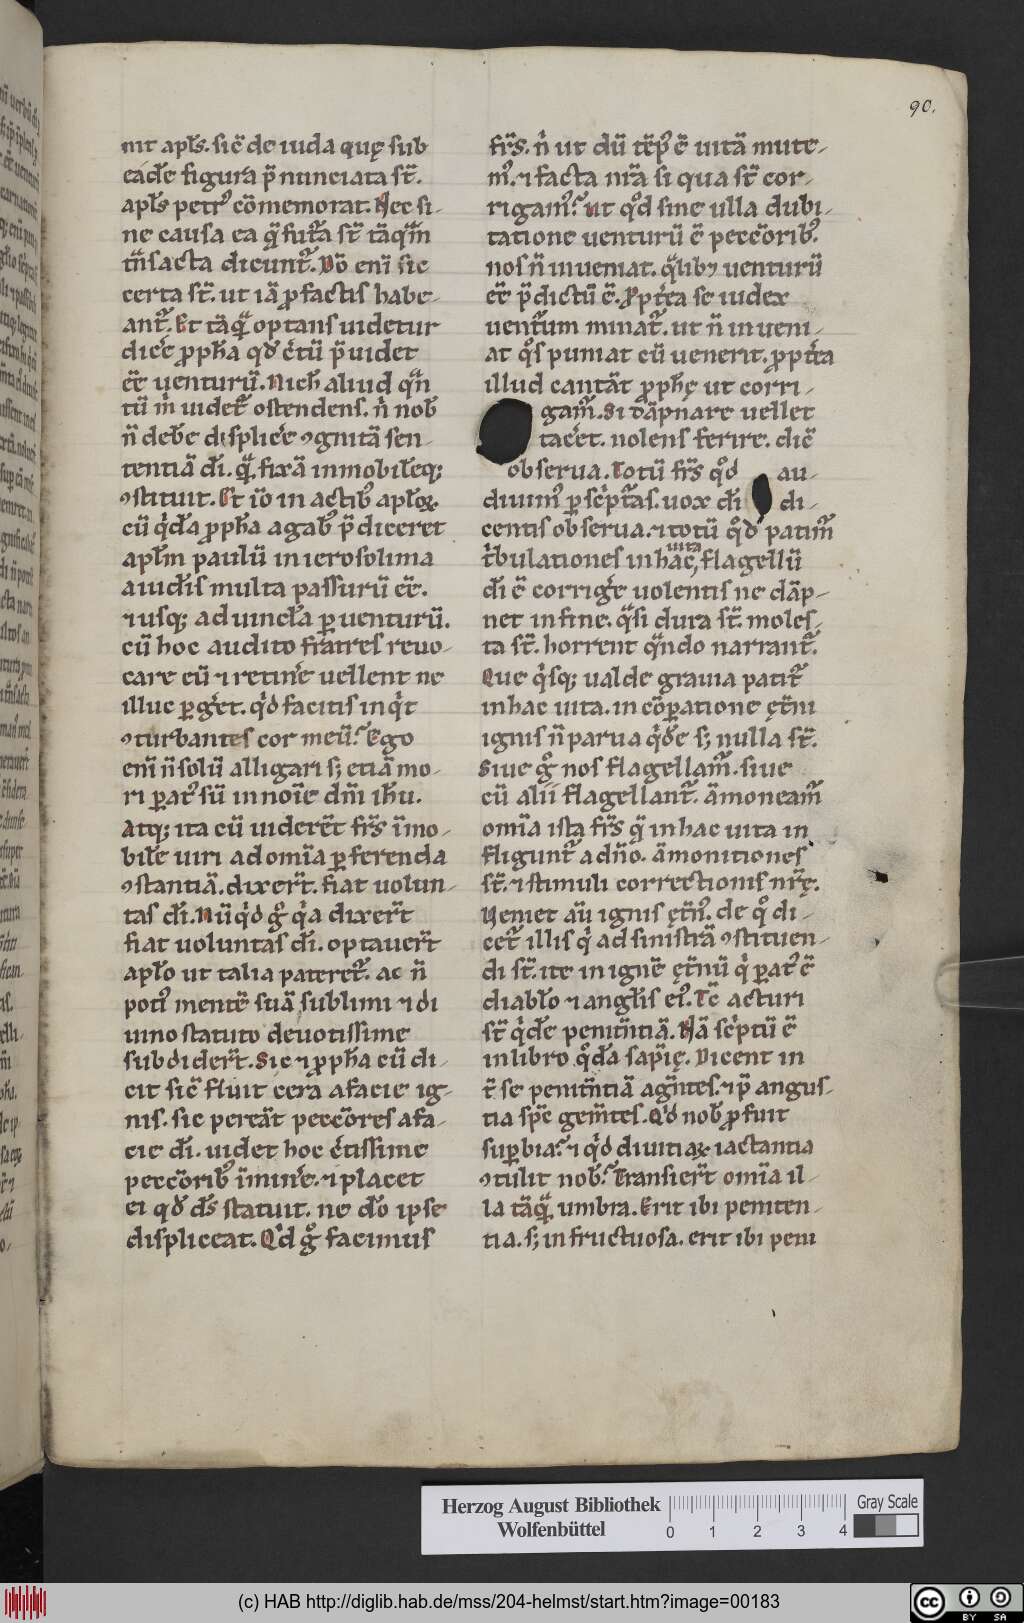 90.
nit apl̄s. sic̄ de iuda quę sub
ead̄e figura p̄nunciata st̄.
apl̄s petr᷒ cōmemorat. Nec si-
ne causa ea q̄ fut̄a st̄ tāq̄m
t̄nsacta dicunt᷑. Dō eni sic
certa st̄. ut iā ꝓ factis habe-
ant᷑. Et tāq̄ optans uidetur
dicē ꝓpħa qđ c̄tū p̄uidet
eē uenturū. Nicħ aliud q̄n
tū m̄ uidet᷑ ostendens. n̄ nob̄
n̄ deb̄e displicē ꝯgnitā sen-
tentiā dī. q̄ fixā inmobilēq;
ꝯstituit. Et iō in actib᷒ aplōꝝ
cū q̄da ꝓpħa agab᷒ p̄diceret
apl̄m paulū in ierosolima
a iudīs multa passurū eē.
⁊ usq; ad uincl̄a ꝑuenturū.
cū hoc audito fratres reuo-
care eū ⁊ retinē uellent ne
illuc ꝑget. qđ facitis inq̄t
ꝯturbantes cor meū. Ego
eni n̄ solū alligari s; etiā mo-
ri ꝑat᷒ sū in noīe dn̄i iħu.
Atq; ita cū uiderēt fr̄s imo-
bile uiri ad omīa ꝑferenda
ꝯstantiā. dixer̄t. fiat uolun-
tas dī. Nūqđ g̊ q̄a dixer̄t
fiat uoluntas dī. optauer̄t
aplō ut talia pateret᷑. ac n̄
poti᷒ mentē suā sublimi ⁊ di
uino statuto deuotissime
subdider̄t. Sic ⁊ ꝓpħa cū di-
cit sic̄ fluit cera a facie ig-
nis. sic pereāt peccōres a fa-
cie dī. uidet hoc c̄tissime
peccōrib᷒ iminē. ⁊ placet
ei qđ ds̄ statuit. ne dō ipse
displiceat. Qđ g̊ facimus
fr̄s. n̄ ut dū tēp᷒ ē uitā mute-
m᷒. ⁊ facta nr̄a si qua st̄ cor-
rigam᷒. ut qđ sine ulla dubi-
tatione uenturū ē peccōrib᷒.
nos n̄ inueniat. q̄lib; uenturū
eē p̄dictū ē. Ppt̄ea se iudex
uentur̄um minat᷑. ut n̄ inueni-
at q̊s puniat cū uenerit. ꝓpt̄ea
illud cantāt ꝓpħę ut corri-
gam᷑. Si dāpnare uellet
tac̄et. nolens ferire. dic̄
obserua. Totū fr̄s qđ au-
diuim᷒ ꝑ sc̄ptur̄as. uox dī di-
centis obserua. ⁊ totū qđ patim᷑
t̄bulationes in hac uita, flagellū
dī ē corrigē uolentis ne dāp-
net in fine. q̄si dura st̄. moles-
ta st̄. horrent q̄ndo narrant᷑.
Que q̄sq; ualde grauia patit᷑
in hac uita. in cōꝑatione ęt̄ni
ignis n̄ parua q̄de s; nulla st̄.
Siue g̊ nos flagellam᷑. siue
cū alii flagellant᷑. āmoneam᷑
omīa ista fr̄s q̄ in hac uita in
fligunt᷑ a dn̄o. āmonitiones
st̄. ⁊ stimuli correctionis nr̄ę.
Ueniet aū ignis ęt̄n᷒. de q̊ di-
cet᷑ illis q̄ ad sinistrā ꝯstituen-
di st̄. ite in ignē ęt̄nū q̄ ꝑat᷒ ē
diabl̄o ⁊ angl̄is ei᷒. Tc̄ acturi
st̄ q̄de penit̄ntiā. Nā sc̄ptū ē
in libro q̊da sapīę. Dicent in
t̄ se penit̄ntiā agn̄tes. ⁊ p̄ angus-
tia spc̄ gem̄tes. Qđ nob̄ ꝓfuit
suꝑbia. ⁊ qđ diuitiaꝝ iactantia
ꝯtulit nob̄. Transier̄t omīa il-
la tāq̄ umbra. Erit ibi peniten-
tia. s; infructuosa. erit ibi peni
Herzog August Bibliothek
Wolfenbüttel
0 1 2 3 4
Gray Scale
(c) HAB http://diglib.hab.de/mss/204-helmst/start.htm?image=00183
cc BY SA